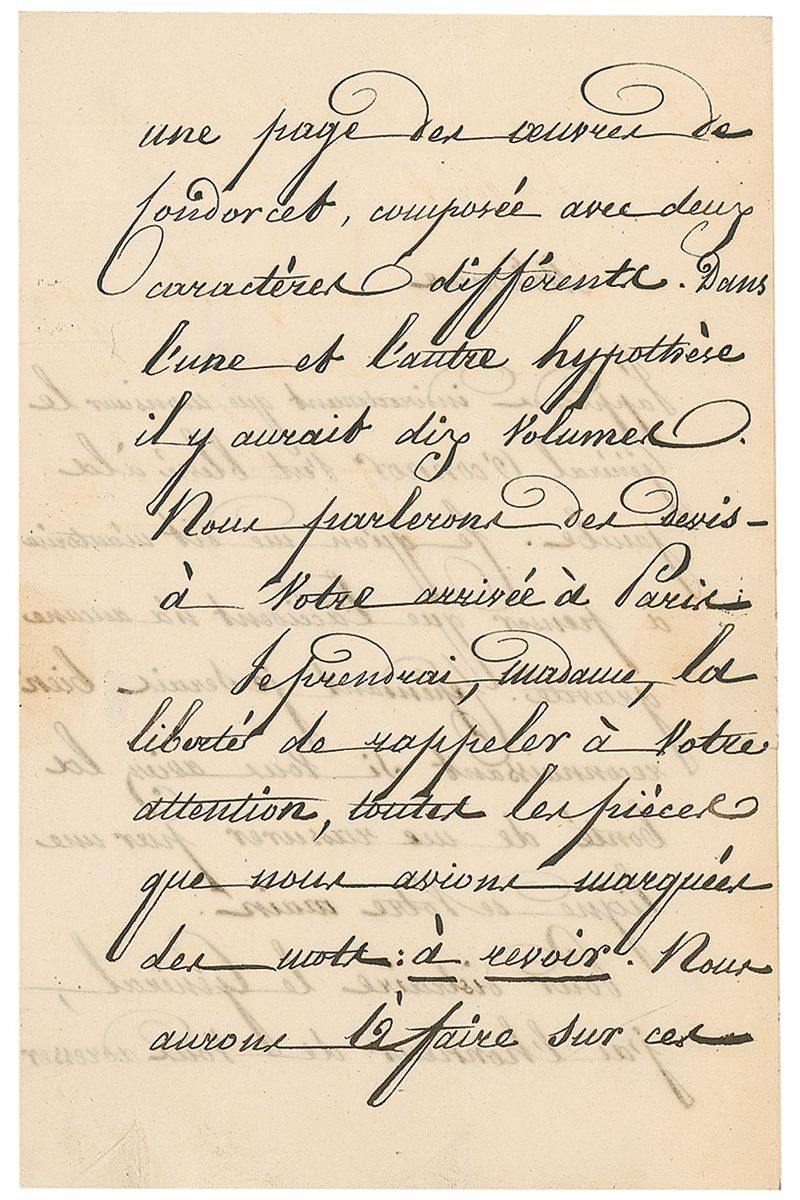 une page des œuvres de
Condorcet, composée avec deux
caractères différents. Dans
l'une et l'autre hypothèse
il y aurait dix volumes.
Nous parlerons des devis
à votre arrivée à Paris
Je prendrai, madame, la
liberté de rappeler à votre
attention, toutes les pièces
que nous avions marquées
des mots : à revoir. Nous
aurons à faire sur ces